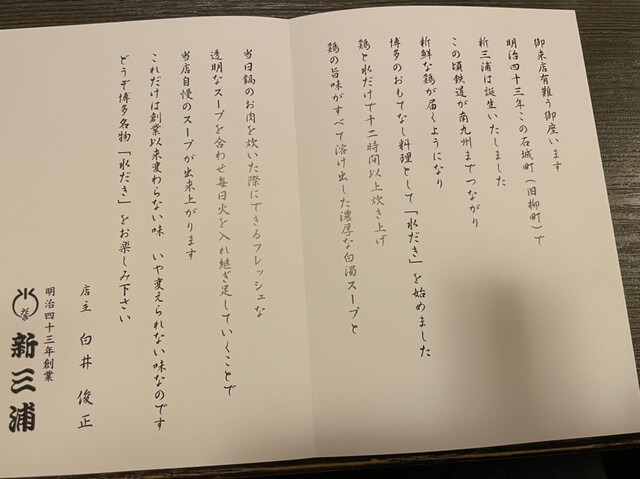 御来店有難う御座います
明治四十三年この石城町（旧柳町）で
新三浦は誕生いたしました
この頃鉄道が南九州までつながり
新鮮な鶏が届くようになり
博多のおもてなし料理として「水だき」を始めました
鶏と水だけで十二時間以上炊き上げ
鶏の旨味がすべて溶け出した濃厚な白濁スープと
当日鍋のお肉を炊いた際にできるフレッシュな
透明なスープを合わせ毎日火を入れ継ぎ足していくことで
当店自慢のスープが出来上がります
これだけは創業以来変わらない味　いや変えられない味なのです
どうぞ博多名物「水だき」をお楽しみ下さい
店主　白井　俊正
明治四十三年創業
新三浦